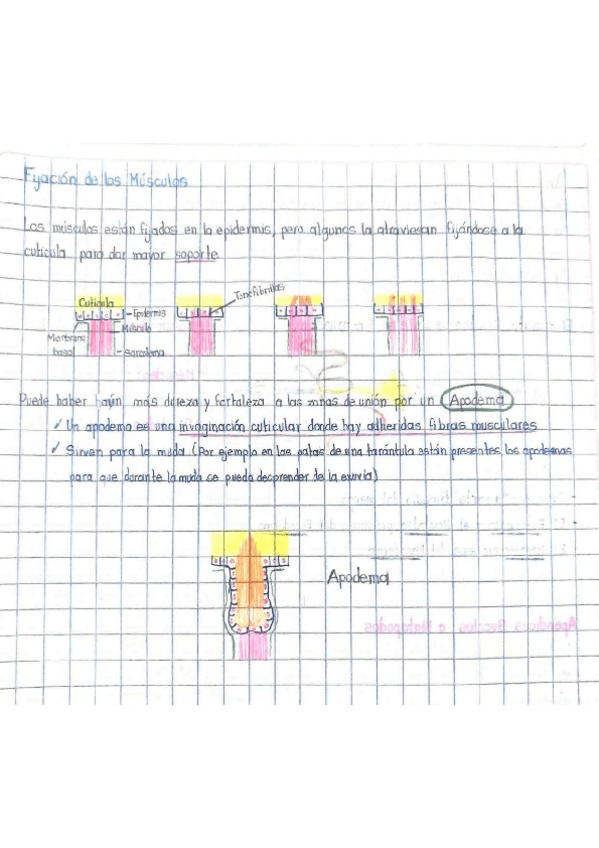 Fijación de los Músculos
Los músculos están fijados en la epidermis, pero algunos la atraviesan fijándose a la
cutícula para dar mayor soporte
Cutícula
Tonofibrillas
Epidermis
Músculo
Membrana
basal
Sarcolema
Puede haber más dureza y fortaleza a las zonas de unión por un Apodema
✓ Un apodema es una invaginación cuticular donde hay adheridas fibras musculares
✓ Sirven para la muda (Por ejemplo en las patas de una tarántula están presentes los apodemas
para que durante la muda se pueda desprender de la exuvia)
Apodema